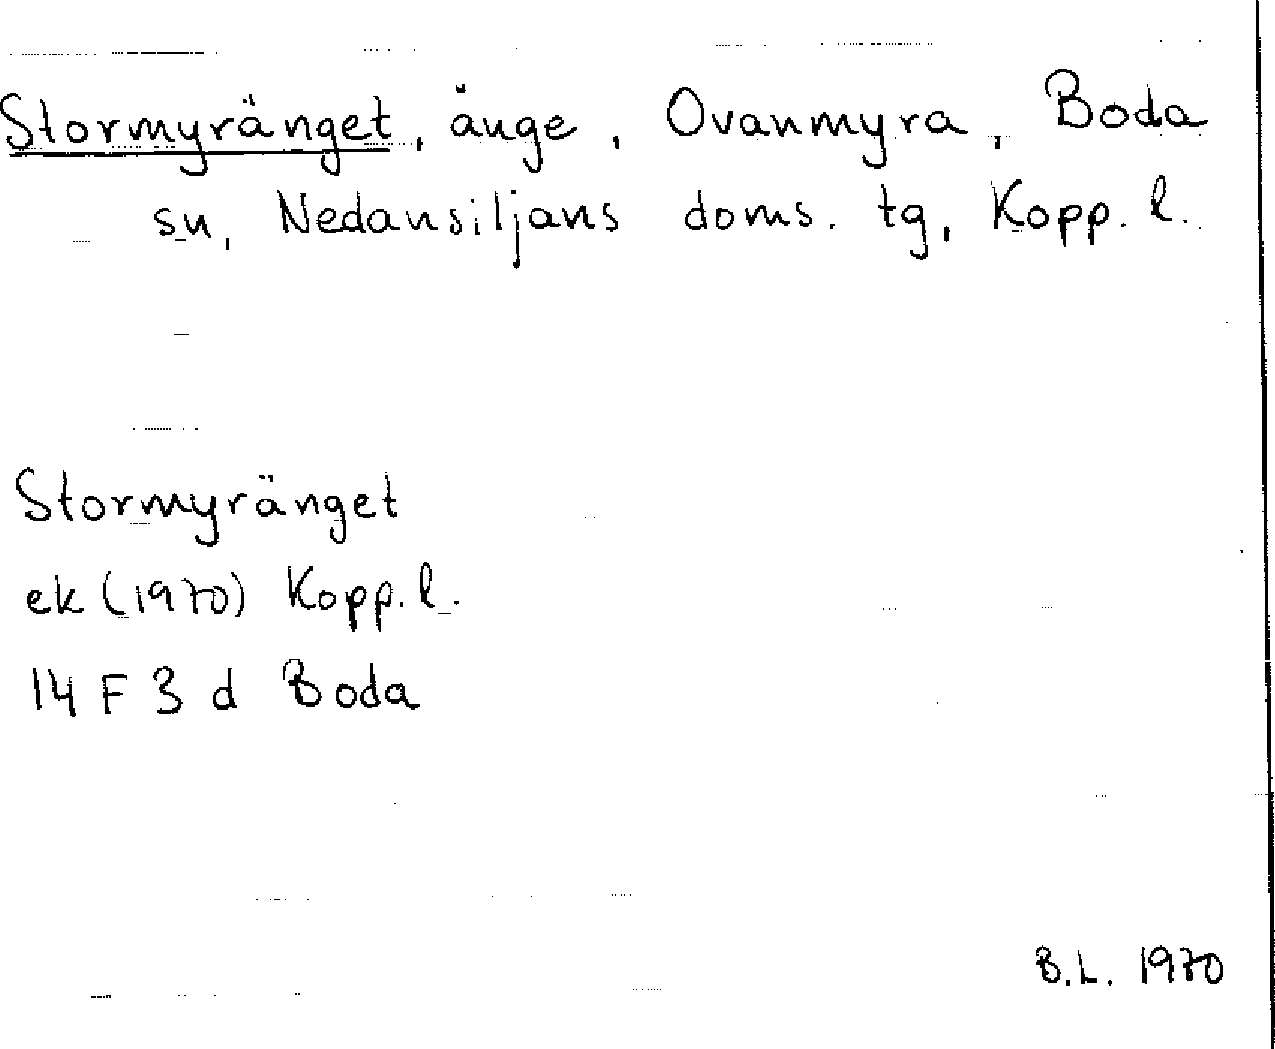 Stormyränget, änge, Ovanmyra, Boda
sn, Nedansiljans doms. tg, Kopp. l.
Stormyränget
ek (1970) Kopp. l.
14 F 3 d Boda
B.L. 1970